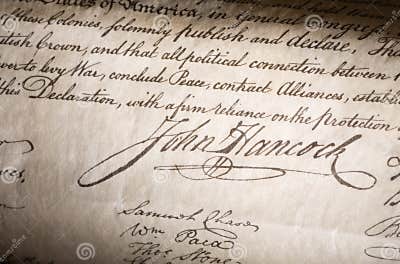 States of America, in General Congress
these Colonies, solemnly publish and declare, Tha
itish Crown, and that all political connection between
er to levy War, conclude Peace, contract Alliances, establ
this Declaration, with a firm reliance on the protection
John Hancock
Samuel Chase
Wm Paca
Thos Stone
dreamstime